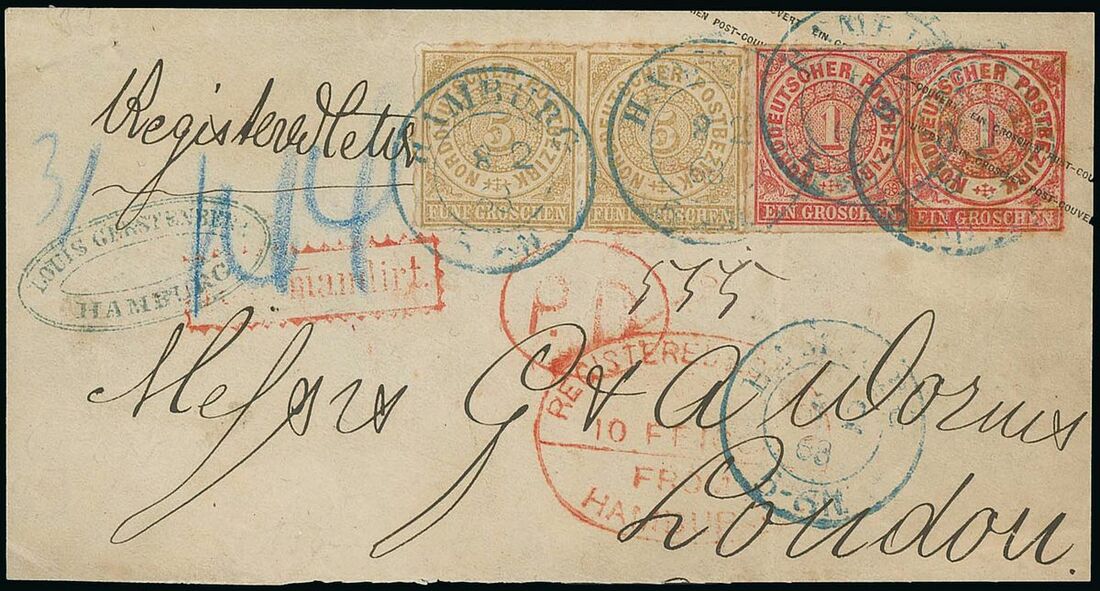 EIN GROSCHEN POST-COUVERT EIN GROSCHEN POST-COUVERT
Registered letter
31
LOUIS GERSTENBERG
HAMBURG
NORDDEUTSCHER POSTBEZIRK
5
FÜNF GROSCHEN
NORDDEUTSCHER POSTBEZIRK
5
FÜNF GROSCHEN
NORDDEUTSCHER POSTBEZIRK
1
EIN GROSCHEN
NORDDEUTSCHER POSTBEZIRK
1
EIN GROSCHEN
HAMBURG
8 2
68
Recomandirt.
P.D.
REGISTERED
10 FEB
FROM
HAMBURG
68
5-6N.
Messrs G & A Worms
London.